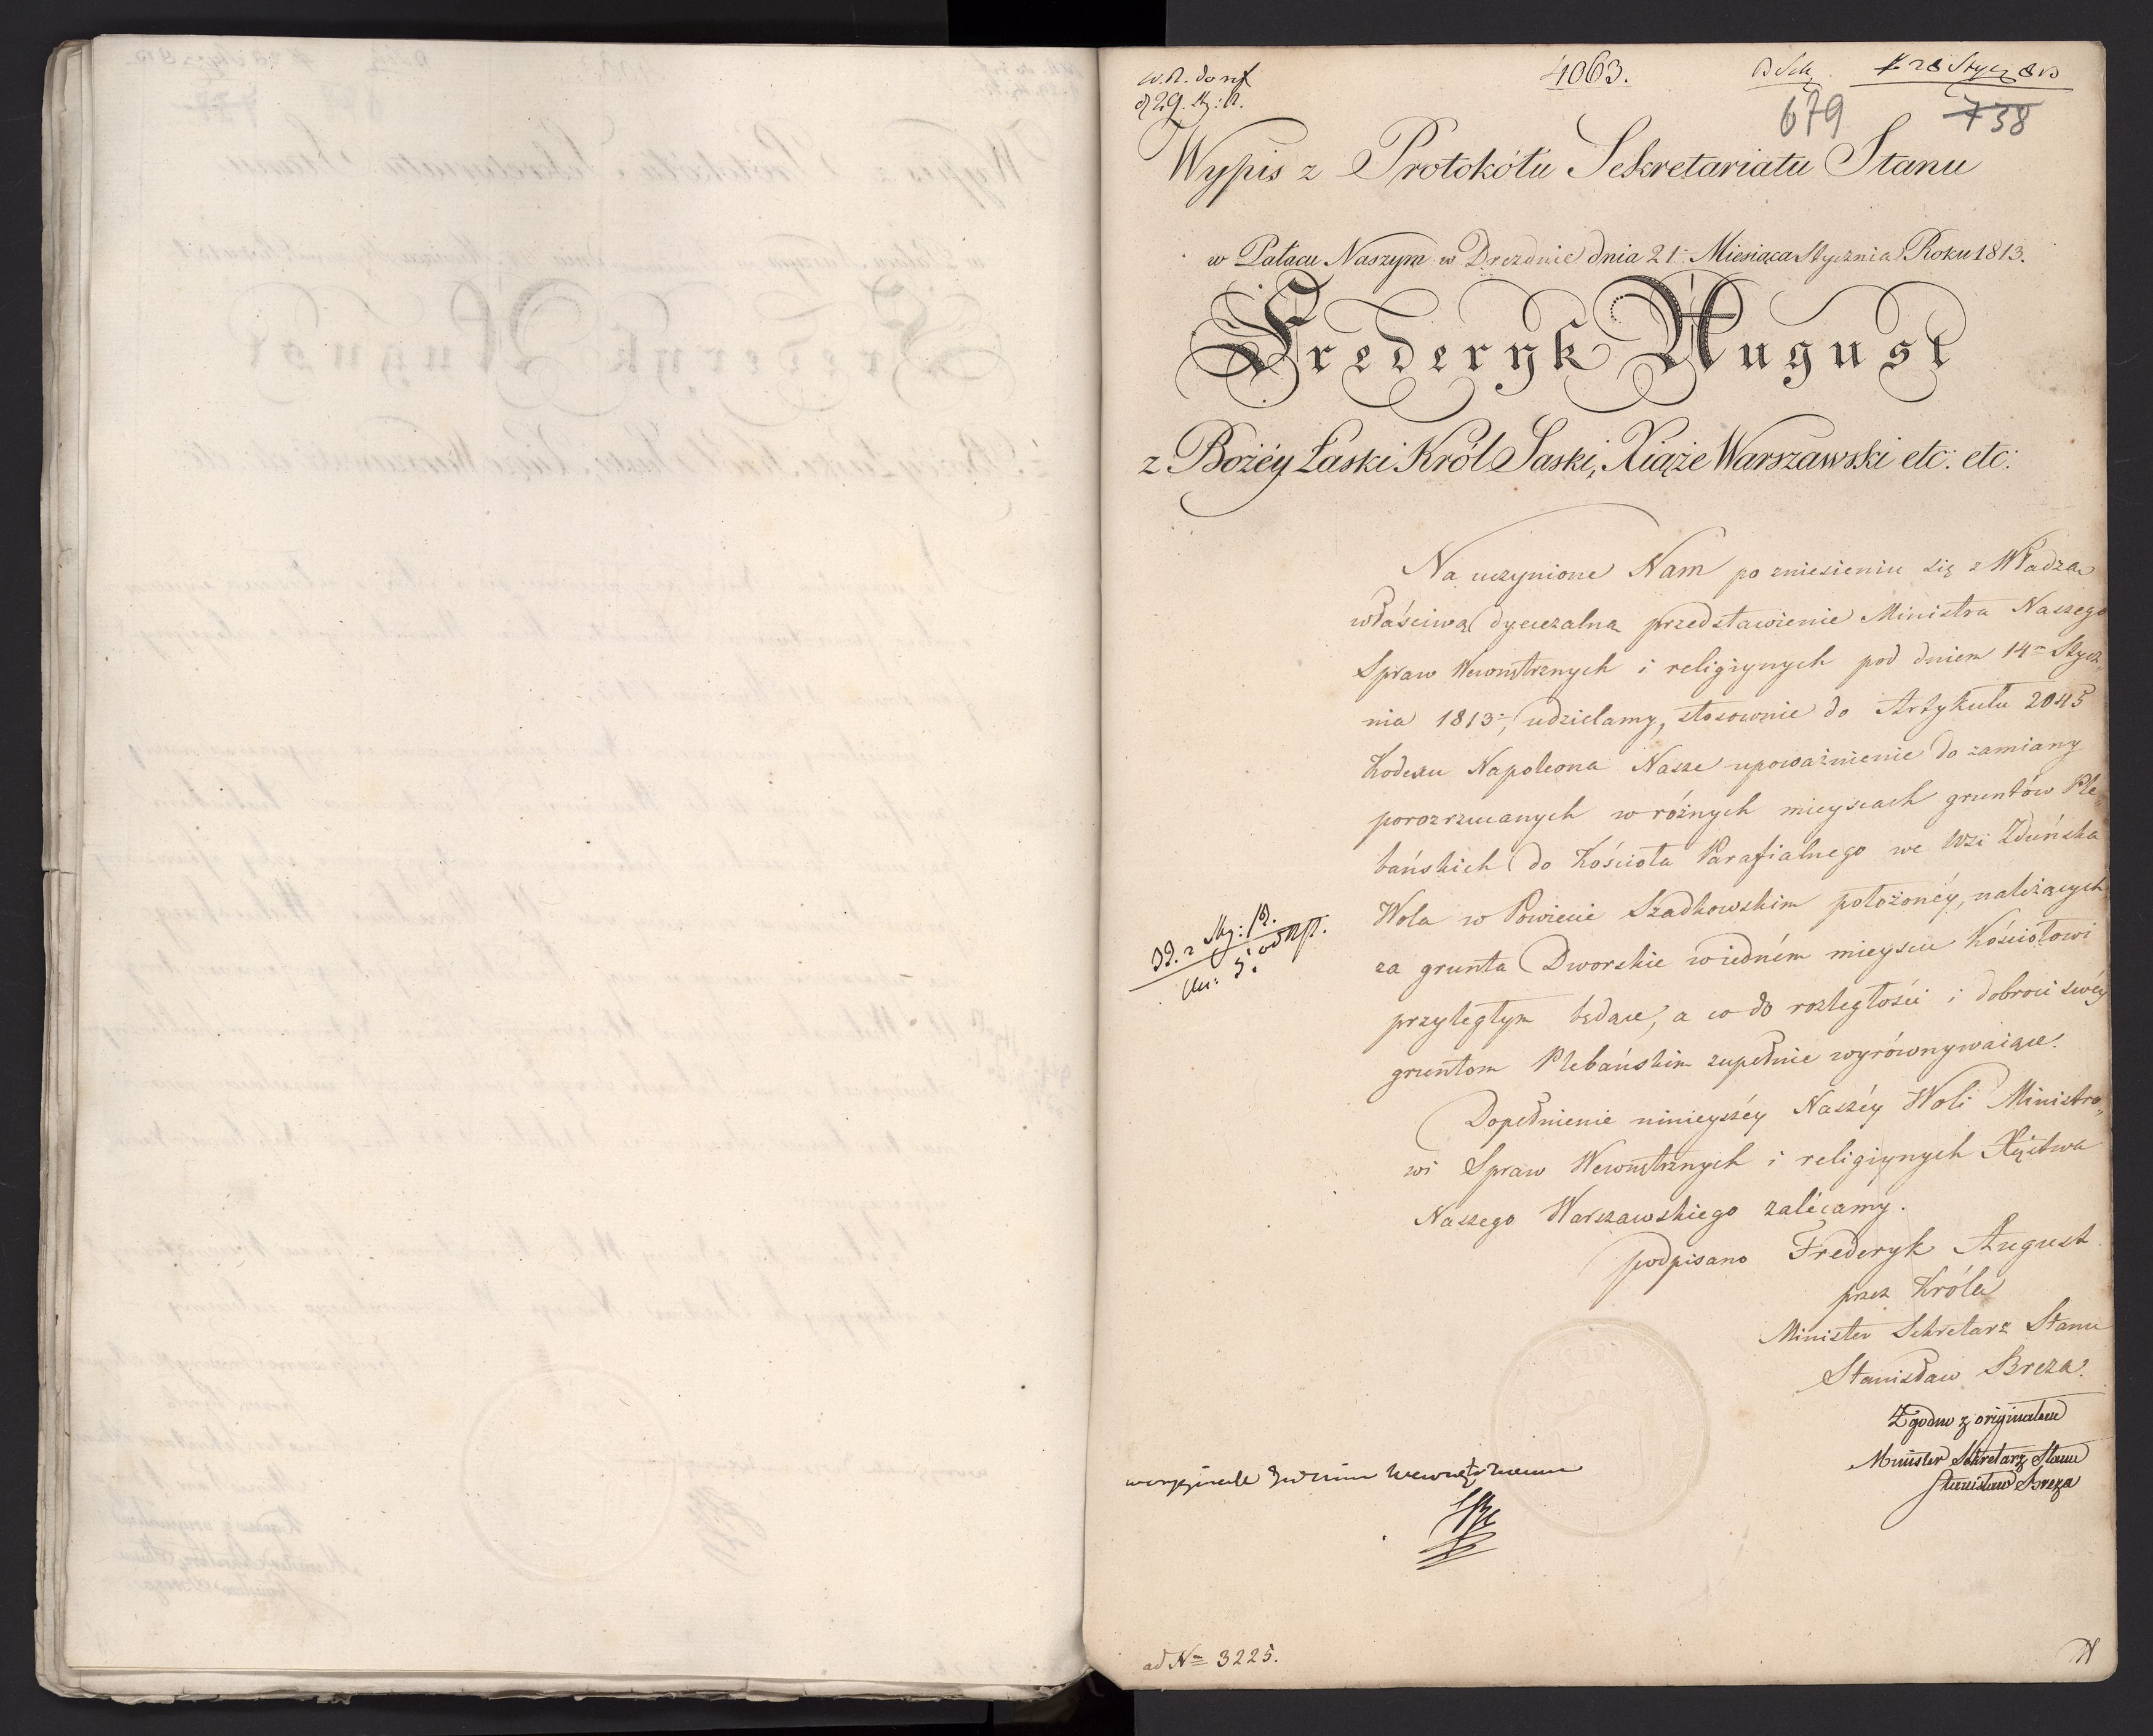 4063.
679
738
Wypis z Protokółu Sekretariatu Stanu
w Pałacu Naszym w Dreźdnie dnia 21. Miesiąca Stycznia Roku 1813.
Frederyk August
z Bożéy Łaski Król Saski, Xiąże Warszawski etc: etc:
Na uczynione Nam po zniesieniu się z Władzą
właściwą dyecezalną przedstawienie Ministra Naszego
Spraw Wewnętrznych i religiynych pod dniem 14m Stycz„
nia 1813., udzielamy, stosownie do Artykułu 2045
Kodexu Napoleona Nasze upoważnienie do zamiany
porozrzucanych w różnych mieyscach gruntów Ple„
bańskich do Kościoła Parafialnego we Wsi Zduńska
Wola w Powiecie Szadkowskim położonéy, należących
za grunta Dworskie w iedném mieyscu Kościołowi
przyległym będące, a co do rozległości i dobroci swéy
gruntom Plebańskim zupełnie wyrównywaiące.
Dopełnienie ninieyszéy Naszéy Woli Ministro„
wi Spraw Wewnętrznych i religiynych Xięstwa
Naszego Warszawskiego zalécamy.
podpisano Frederyk August
przez Króla
Minister Sekretarz Stanu
Stanisław Breza.
Zgodno z originałem
Minister Sekretarz Stanu
Stanisław Breza
ad Nm 3225.